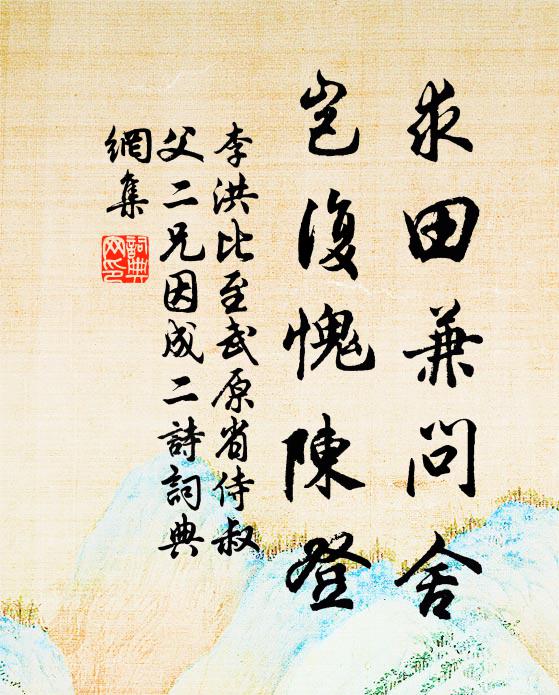 求田兼問舍
豈復愧陳登
李洪比至武原省侍叔
父二兄因成二詩詞典
網集
詞典
网印